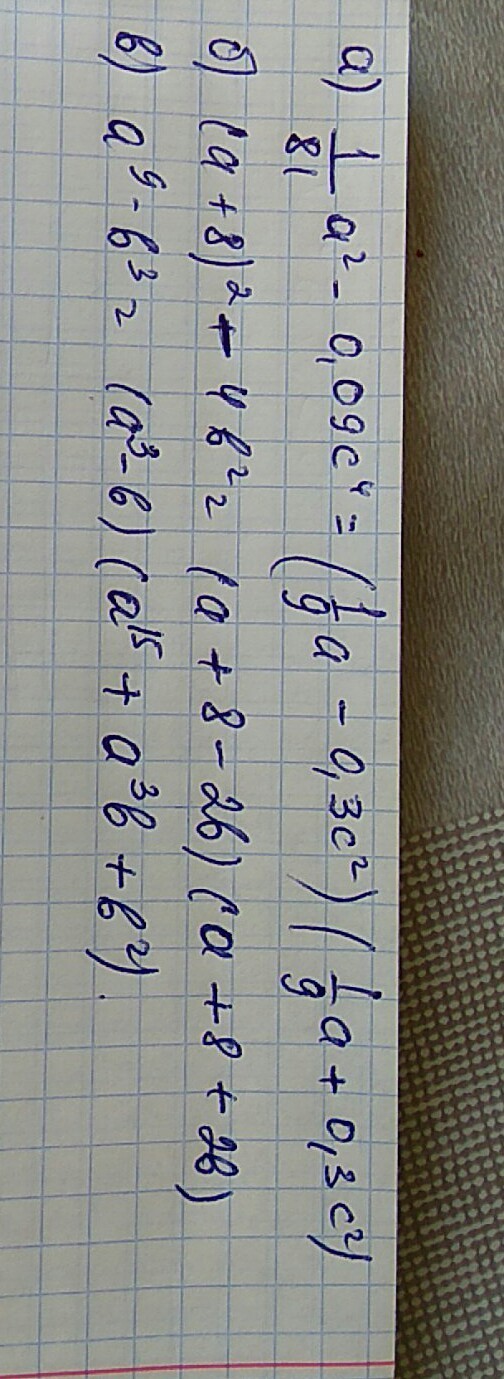 а) 1/81 a² - 0,09c⁴ = (1/9 a - 0,3c²)(1/9 a + 0,3c²)
б) (a + 8)² - 4b² = (a + 8 - 2b)(a + 8 + 2b)
в) a⁹ - b³ = (a³ - b)(a¹⁵ + a³b + b²).